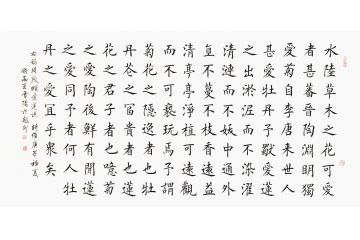 水陸草木之花可愛
者甚蕃晉陶淵明獨
愛菊自李唐來世人
甚愛牡丹予獨愛蓮
之出淤泥而不染濯
清漣而不妖中通外
直不蔓不枝香遠益
清亭亭淨植可遠觀
而不可褻玩焉予謂
菊花之隱逸者也牡
丹花之富貴者也蓮
花之君子者也噫菊
之愛陶後鮮有聞蓮
之愛同予者何人牡
丹之愛宜乎衆矣
右錄周敦頤愛蓮說時維庚子初夏